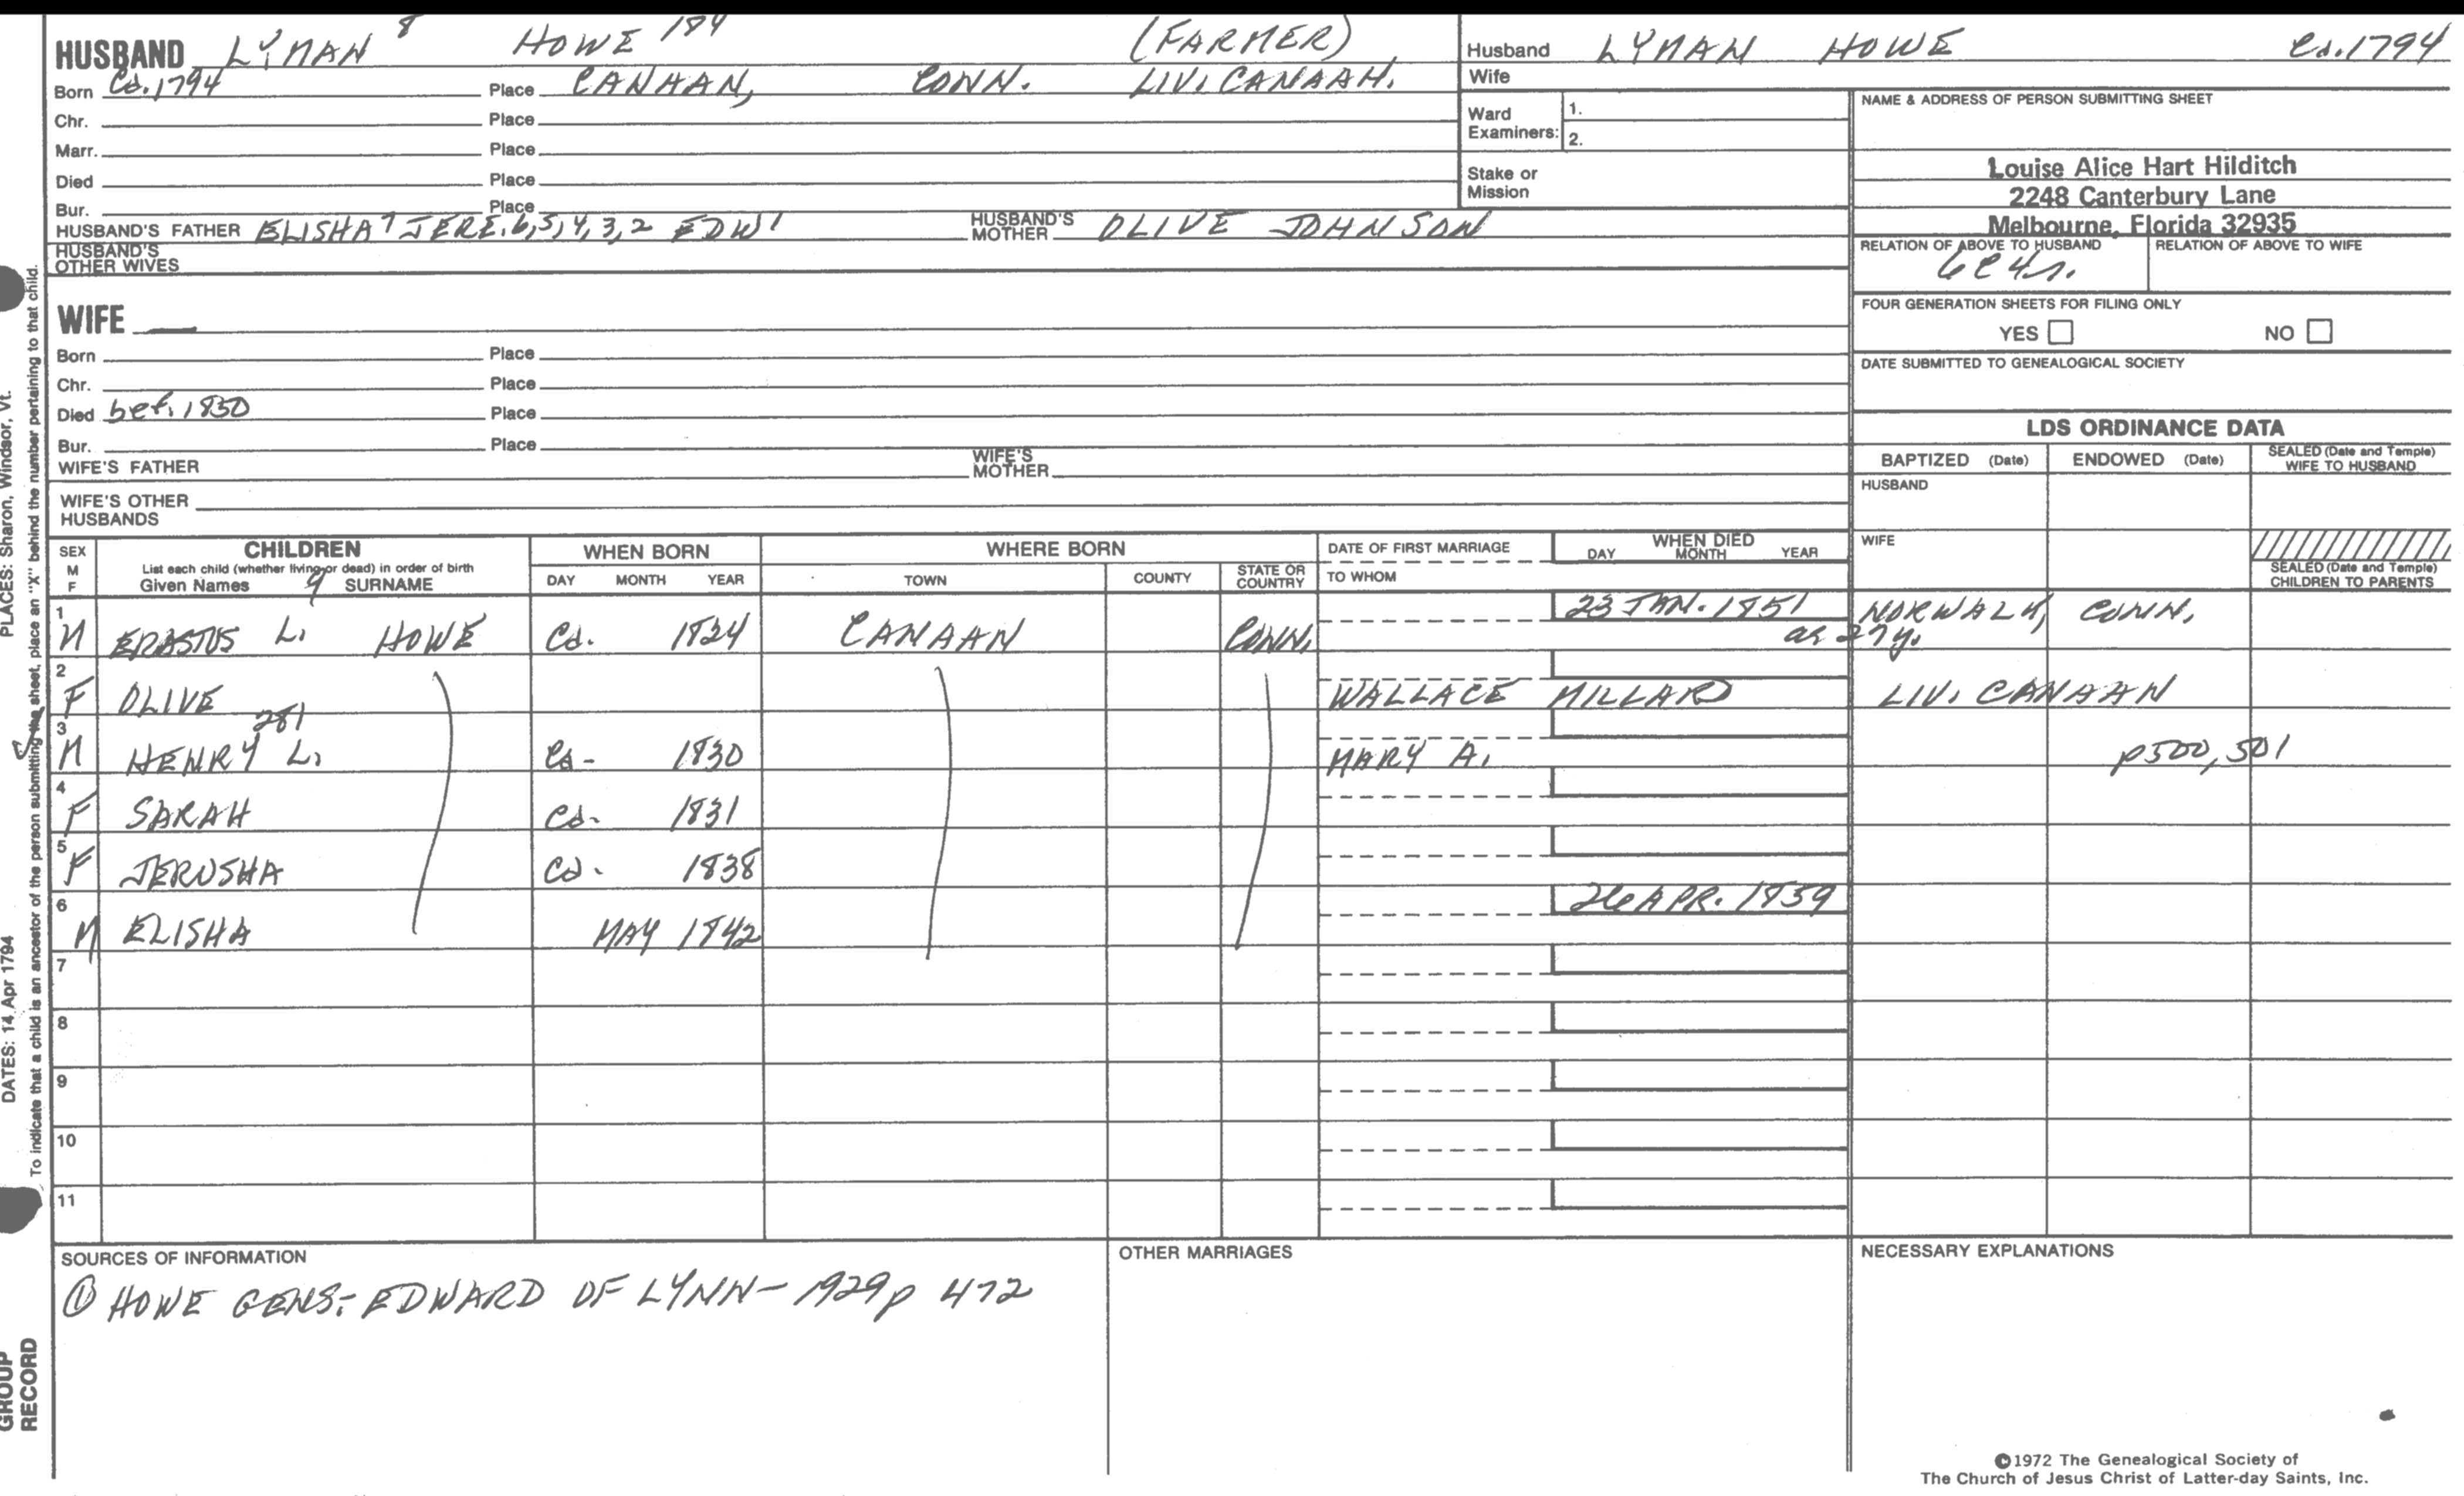 HUSBAND LYMAN 8 HOWE 184 (FARMER)
Born Ca. 1794 Place CANAAN, CONN. LIV. CANAAH.
Chr. Place
Marr. Place
Died Place
Bur. Place
HUSBAND'S FATHER ELISHA 7 JERE. 6, 5, 4, 3, 2 EDW 1 HUSBAND'S MOTHER OLIVE JOHNSON
HUSBAND'S OTHER WIVES
Husband LYMAN HOWE Ca. 1794
Wife
Ward Examiners: 1.
2.
Stake or Mission
NAME & ADDRESS OF PERSON SUBMITTING SHEET
Louise Alice Hart Hilditch
2248 Canterbury Lane
Melbourne, Florida 32935
RELATION OF ABOVE TO HUSBAND RELATION OF ABOVE TO WIFE
6C4r.
FOUR GENERATION SHEETS FOR FILING ONLY
YES NO
DATE SUBMITTED TO GENEALOGICAL SOCIETY
WIFE —
Born Place
Chr. Place
Died bef. 1850 Place
Bur. Place
WIFE'S FATHER WIFE'S MOTHER
WIFE'S OTHER HUSBANDS
LDS ORDINANCE DATA
BAPTIZED (Date) ENDOWED (Date) SEALED (Date and Temple) WIFE TO HUSBAND
HUSBAND
WIFE
SEALED (Date and Temple) CHILDREN TO PARENTS
SEX M F CHILDREN WHEN BORN WHERE BORN DATE OF FIRST MARRIAGE WHEN DIED
List each child (whether living or dead) in order of birth
Given Names 9 SURNAME DAY MONTH YEAR TOWN COUNTY STATE OR COUNTRY TO WHOM DAY MONTH YEAR
1 M ERASTUS L. HOWE Ca. 1824 CANAAN CONN. 23 JAN. 1851 NORWALK, CONN.
ae 27 y.
2 F OLIVE WALLACE MILLARD LIV. CANAAN
3 M HENRY L. 281 Ca. 1830 MARY A. p500, 501
4 F SARAH Ca. 1831
5 F JERUSHA Ca. 1838
6 M ELISHA MAY 1842 26 APR. 1859
7
8
9
10
11
SOURCES OF INFORMATION
① HOWE GENS: EDWARD OF LYNN - 1929 p 472
OTHER MARRIAGES
NECESSARY EXPLANATIONS
©1972 The Genealogical Society of
The Church of Jesus Christ of Latter-day Saints, Inc.
PLACES: Sharon, Windsor, Vt.
DATES: 14 Apr 1794
To indicate that a child is an ancestor of the person submitting the sheet, place an "X" behind the number pertaining to that child.
GROUP
RECORD